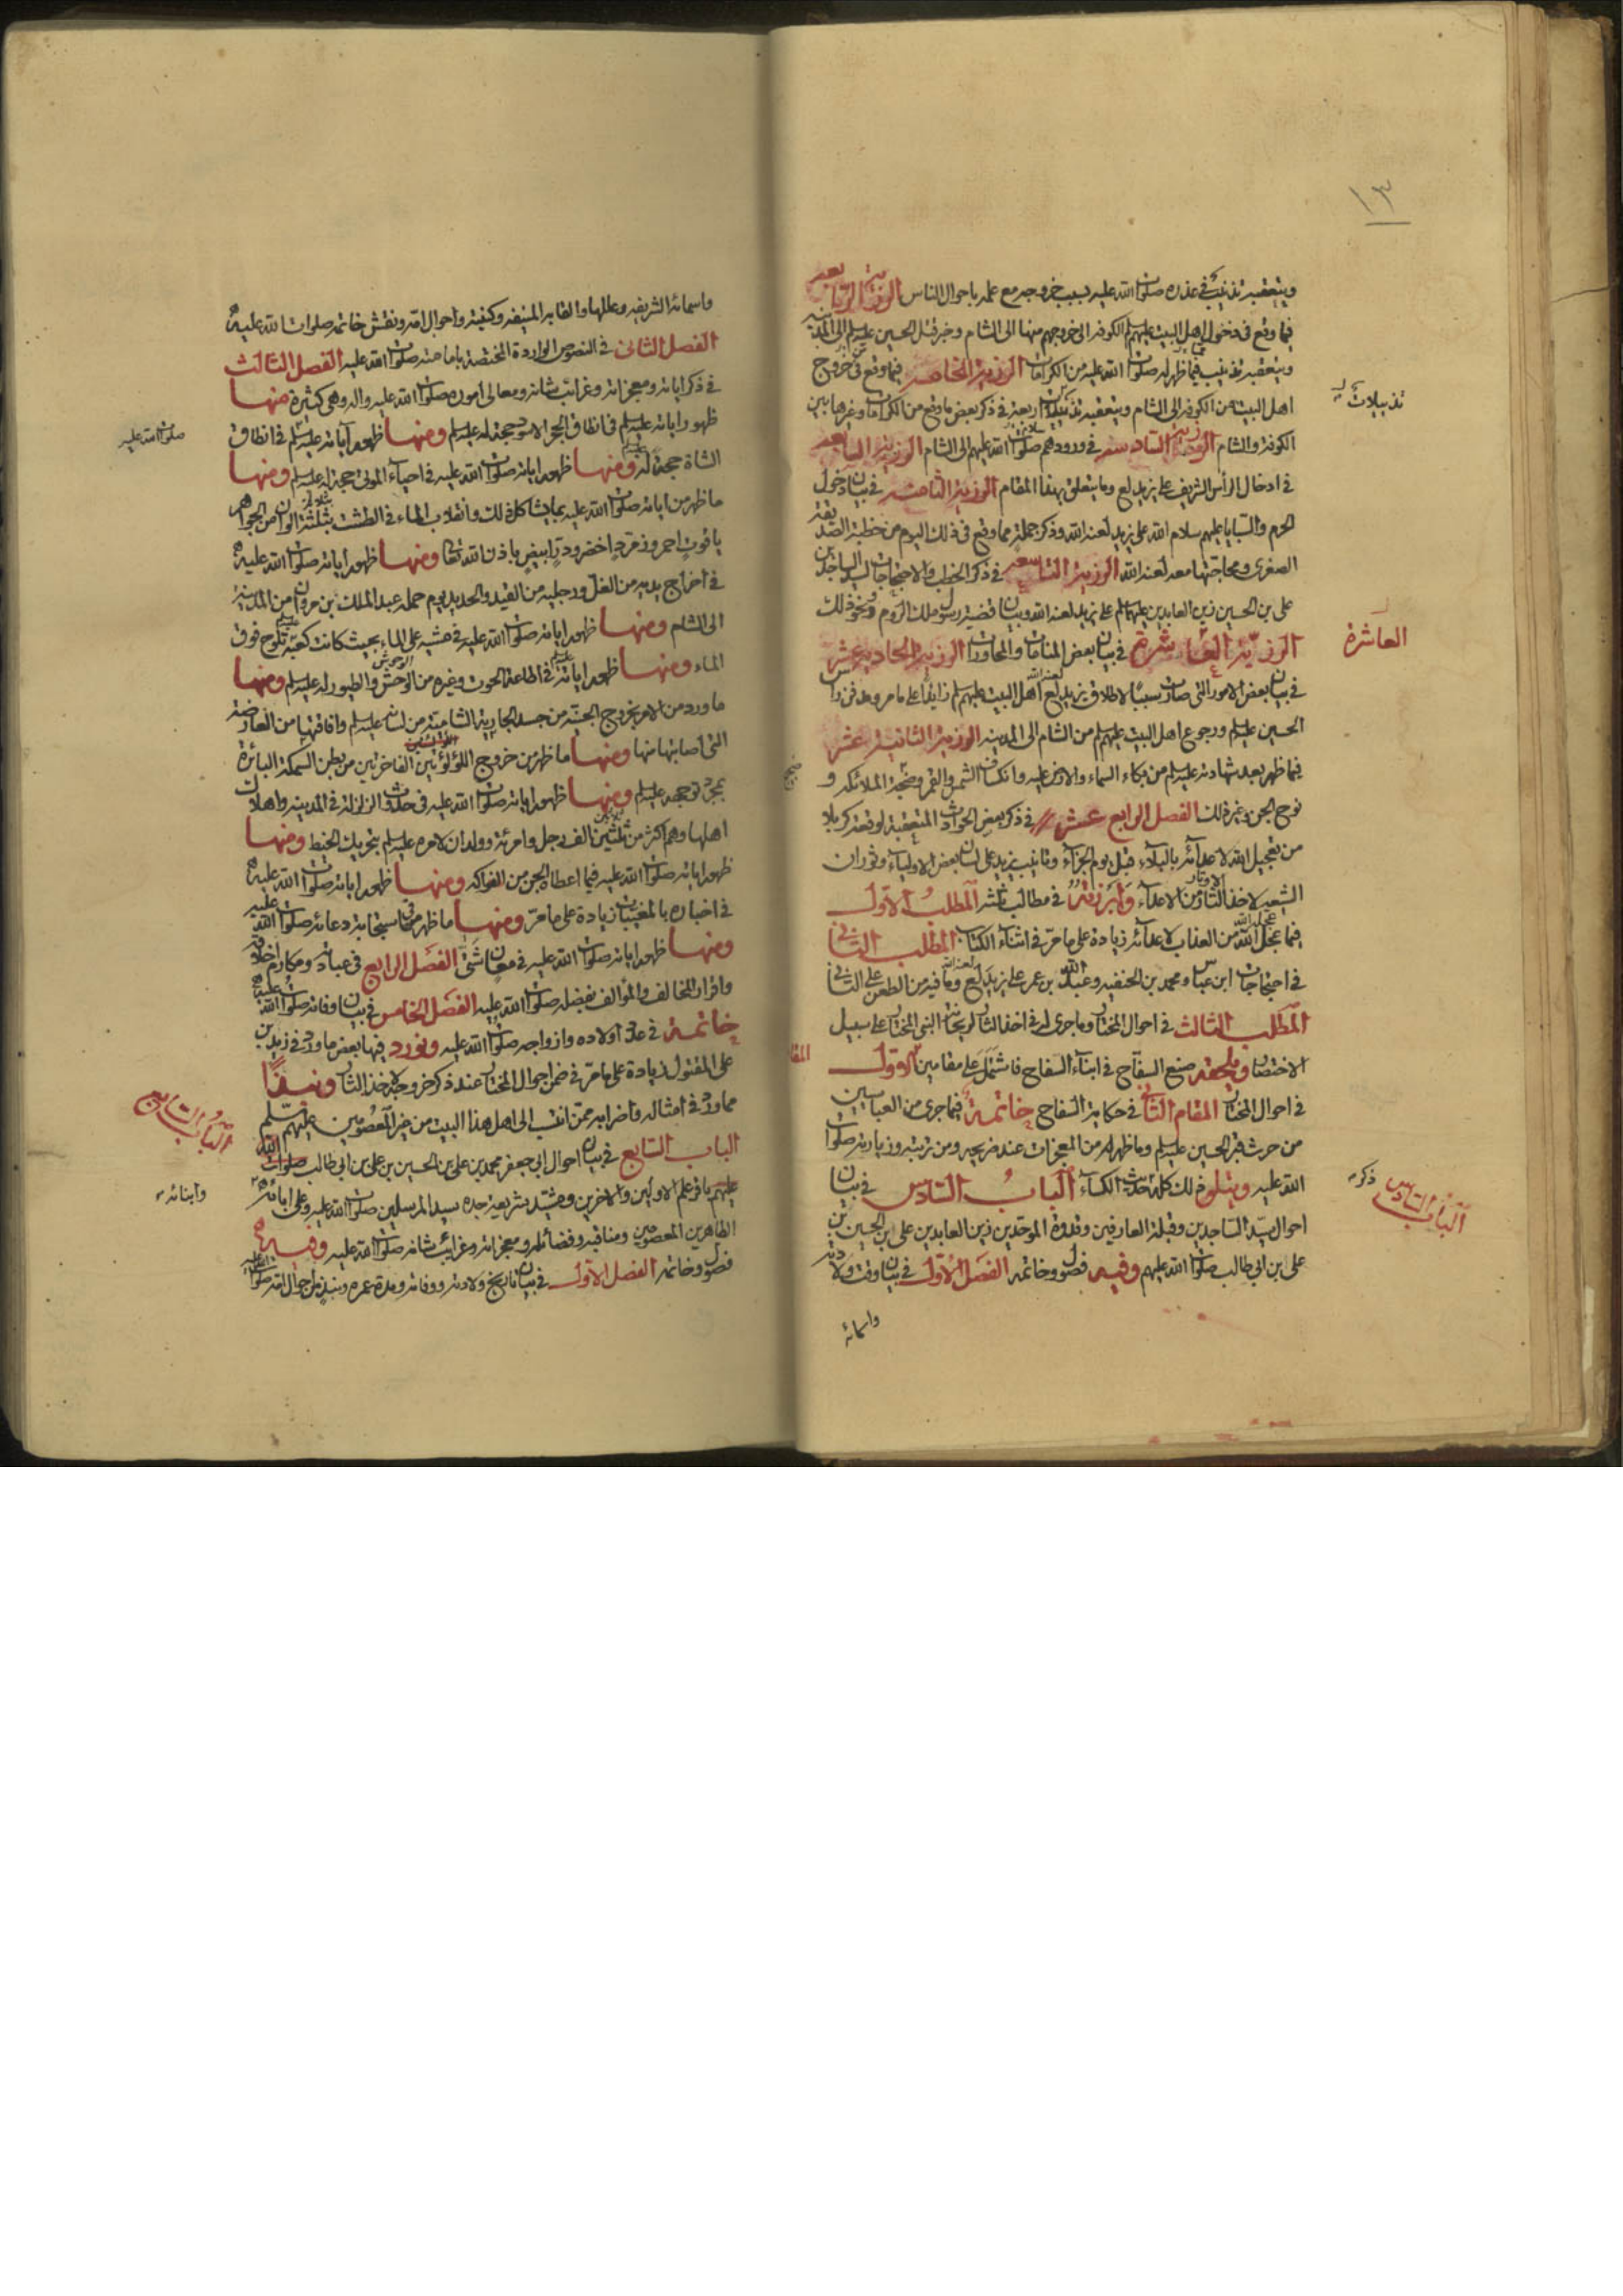 ١٣
ويتعقبه تذنيب في عذره صلوات الله عليه بسبب خروجه مع علمه باحوال الناس الرزية الرابعة
فيما وقع في دخول اهل البيت عليهم السلام الكوفة الى خروجهم منها الى الشام وخبر قتل الحسين عليه السلام الى المدينة
ويتعقبه تذنيب فيما ظهر له صلوات الله عليه من الكرامات الرزية الخامسة فيما وقع في خروج
اهل البيت من الكوفة الى الشام ويتعقبه تذييلات اربعة في ذكر بعض ما وقع من الكرامات وغيرها بين
تذييلات
الكوفة والشام الرزية السادسة في ورودهم صلوات الله عليهم الى الشام الرزية السابعة
في ادخال الرأس الشريف على يزيد لع وما يتعلق بهذا المقام الرزية الثامنة في بيان دخول
الحرم والسبايا عليهم سلام الله على يزيد لعنه الله وذكر جملة مما وقع في ذلك اليوم من خطبة الصديقة
الصغرى ومحاجتها معه لعنه الله الرزية التاسعة في ذكر الخطب والاحتجاجات لسيد الساجدين
على بن الحسين زين العابدين عليهما السلام على يزيد لعنه الله وبيان قضية رسول ملك الروم ونحو ذلك
الرزية العاشرة في بيان بعض المنامات والمحاورات الرزية الحادية عشر
العاشرة
في بيان بعض الامور التي صارت سببا لاطلاق يزيد لع اهل البيت عليهم السلام زايدا على ما مر وهدفن راس
الحسين عليه السلام ورجوع اهل البيت عليهم السلام من الشام الى المدينة الرزية الثانية عشر
فيما ظهر بعد شهادته عليه السلام من بكاء السماء والارض عليه وانكساف الشمس والقمر وضجة الملائكة و
نوح الجن وغير ذلك الفصل الرابع عشر في ذكر بعض الحوادث المتعقبة لوقعة كربلا
من تعجيل الله لاعدائه بالبلاء قبل يوم الجزاء وتانيب يزيد على لسان بعض الاولياء وثوران
الشيعة لاخذ الثار من الاعداء وابرزته في مطالب ثلثة المطلب الاول
فيما عجل الله من العذاب لاعدائه زيادة على ما مر في اثناء الكتاب المطلب الثاني
في احتجاجات ابن عباس ومحمد بن الحنفيه وعبد الله بن عمر على يزيد لع وما فيه من الطعن على الثاني
المطلب الثالث في احوال المختار وما جرى له في اخذ الثار لريحانة النبي المختار على سبيل
الاختصار ويلحقه صنع السفاح في ابناء السفاح فاشتمل على مقامين الاول
في احوال المختار المقام الثاني في حكاية السفاح خاتمة فيما جرى من العباسيين
من حرث قبر الحسين عليه السلام وما ظهر له من المعجزات عند ضريحه ومن تربته وزيارته صلوات
الله عليه ويتلو ذلك كله حديث الكساء الباب السادس في بيان
ذكر
الباب السادس
احوال سيد الساجدين وقبلة العارفين وقدوة الموحدين زين العابدين على ابن الحسين بن
على ابن ابي طالب صلوات الله عليهم وفيه فصول وخاتمة الفصل الاول في بيان وقت ولادته
واسمائه
واسمائه الشريفه وعللها والقابه المنيفه وكنيته واحوال امه ونقش خاتمه صلوات الله عليه
الفصل الثاني في النصوص الواردة المختصة بامامته صلوات الله عليه الفصل الثالث
في ذكر اياته ومعجزاته وغرائب شانه ومعالي اموره صلوات الله عليه واله وهي كثيرة منها
ظهور اياته عليه السلام في انطاق الحجر الاسود حجة له عليه السلام ومنها ظهور آياته عليه السلام في انطاق
صلوات الله عليه
الشاة حجة له ومنها ظهور اياته صلوات الله عليه في احياء الموتى حجة له عليه السلام ومنها
ما ظهر من اياته صلوات الله عليه بما يشاكل ذلك وانقلاب الماء في الطشت بثلثة الوان من الجواهر
ياقوت احمر وزمرد اخضر ودر ابيض باذن الله تعالى ومنها ظهور اياته صلوات الله عليه
في اخراج يديه من الغل ورجليه من القيد والحديد يوم حمله عبد الملك بن مروان من المدينة
الى الشام ومنها ظهور اياته صلوات الله عليه في مشيه على الماء بحيث كانت كعبه تلوح فوق
الماء ومنها ظهور اياته في اطاعة الحوت وغيره من الوحش والطيور له عليه السلام ومنها
ما ورد من الامر بخروج الجنية من جسد الجارية الشامية من لسانه عليه السلام وافاقتها من العارضة
التي اصابتها منها ومنها ما ظهر من خروج اللؤلؤتين الفاخرتين من بطن السمكة البائرة
بمجرد توجهه عليه السلام ومنها ظهور اياته صلوات الله عليه في حدوث الزلزلة في المدينة واهلاك
اهلها وهم اكثر من ثلثين الف رجل وامرئة وولدان لامره عليه السلام بتحريك الخيط ومنها
ظهور اياته صلوات الله عليه فيما اعطاه الجن من الفواكه ومنها ظهور اياته صلوات الله عليه
في اخباره بالمغيبات زيادة على ما مر ومنها ما ظهر من استجابة دعائه صلوات الله عليه
ومنها ظهور اياته صلوات الله عليه في معان شتى الفصل الرابع في عبادته ومكارم اخلاقه
واقرار المخالف والمؤالف بفضله صلوات الله عليه الفصل الخامس في بيان وفاته صلوات الله عليه
خاتمة في عدد اولاده وازواجه صلوات الله عليه ونورد فيها بعض ما ورد في زيد بن
على المقتول زيادة على ما مر في ضمن احوال المختار عند ذكر خروجه لاخذ الثار ونبذا
مما ورد في امثاله واضرابه ممن انتسب الى اهل هذا البيت من غير المعصومين عليهم السلام
الباب السابع في بيان احوال ابي جعفر محمد بن على بن الحسين بن على بن ابي طالب صلوات الله
الباب السابع
عليهم باقر علم الاولين والاخرين ومشيد شريعة جده سيد المرسلين صلوات الله عليه وعلى ابائه
وابنائه
الطاهرين المعصومين ومناقبه وفضائله ومعجزاته وغرائب شانه صلوات الله عليه وفيه
فصول وخاتمة الفصل الاول في بيان تاريخ ولادته ووفاته ومدة عمره ونبذ من احوال امه صلوات الله عليه